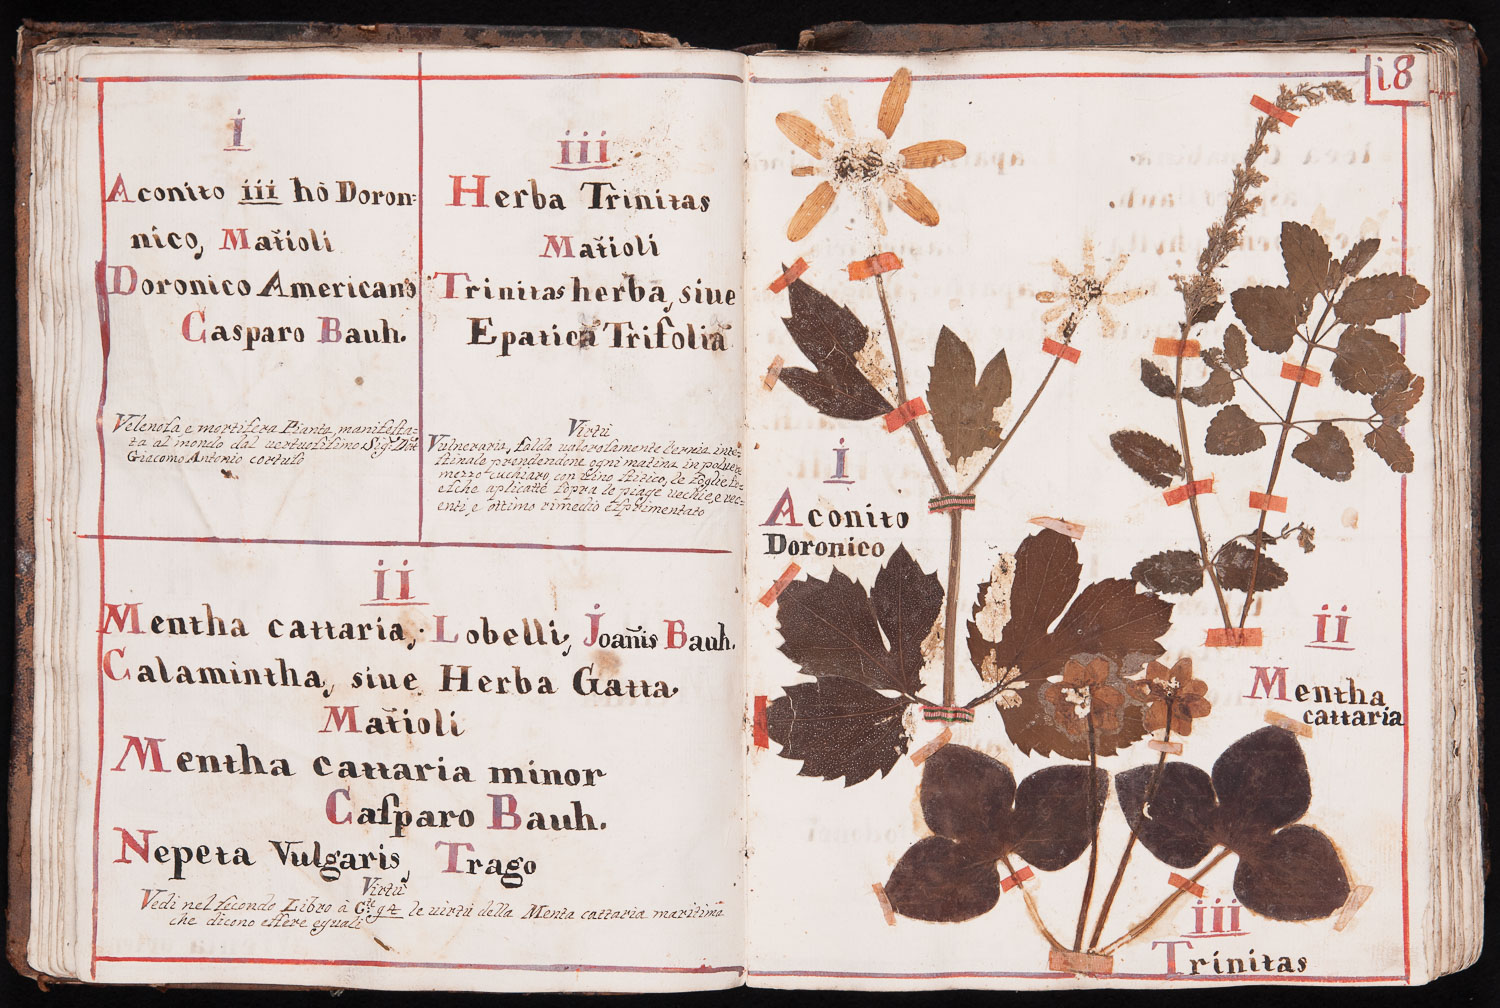 i
Aconito iii hō Doron=
nico, Matioli
Doronico Americano
Casparo Bauh.
Velenosa e mortifera Pianta manifesta=
ta al mondo dal vertuosissimo Sigr. Dor
Giacomo Antonio cortuso
iii
Herba Trinitas
Matioli
Trinitas herba, siue
Epatica Trifolia
Virtù
Vulneraria, salda valorosamente l'ernia inte=
stinale prendendone ogni matina in poluere
mezzo cuchiaro con uino stitico, le foglie fr=
esche aplicatte sopra le piage vechie, e rec=
enti, e ottimo rimedio esprimentato
ii
Mentha cattaria, Lobelli, Joañis Bauh.
Calamintha, siue Herba Gatta.
Matioli
Mentha cattaria minor
Casparo Bauh.
Nepeta Vulgaris, Trago
Virtù
Vedi nel secondo Libro à Cte. 94 le uirtù della Menta cattaria maritima
che dicono essere eguali
i8
i
Aconito
Doronico
ii
Mentha
cattaria
iii
Trinitas